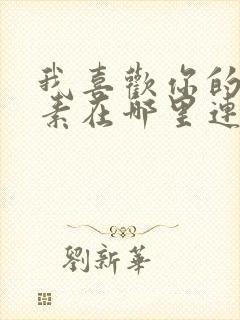 我喜歡你的
素在哪里連
劉新華